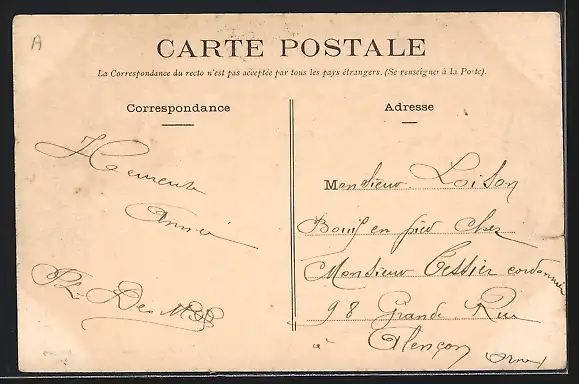 A
CARTE POSTALE
La Correspondance du recto n'est pas acceptée par tous les pays étrangers. (Se renseigner à la Poste).
Correspondance
Adresse
Année
Monsieur Loison
en pied chez
Monsieur Tessier cordonnier
98 Grande Rue
à Alençon
Orne